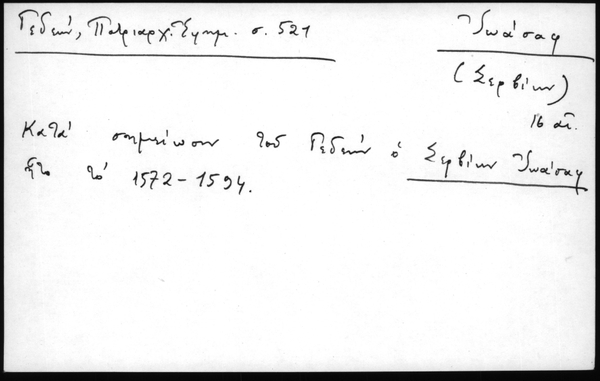 Γεδεών, Πατριαρχ. Ἐφημ. σ. 521
Ἰωάσαφ
(Σερβίων)
16 αἰ.
Κατά σημείωσιν τοῦ Γεδεών ὁ Σερβίων Ἰωάσαφ
ἦτο τό 1572-1594.